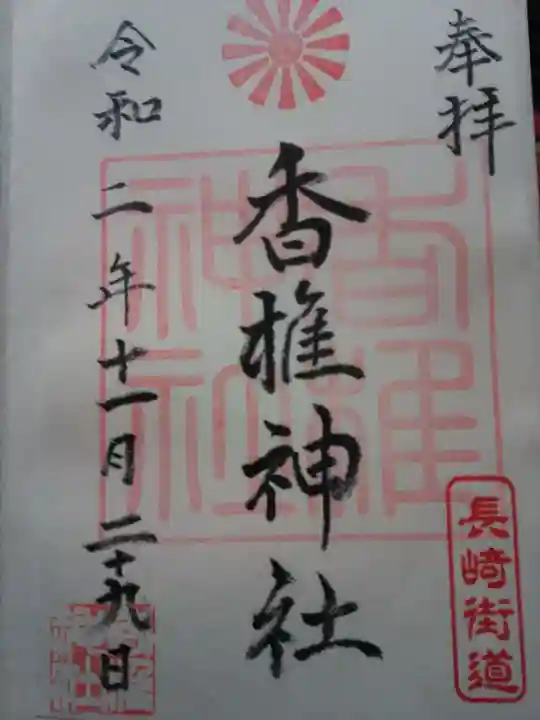 奉拝
香椎神社
香椎神社
長崎街道
令和二年十一月二十九日